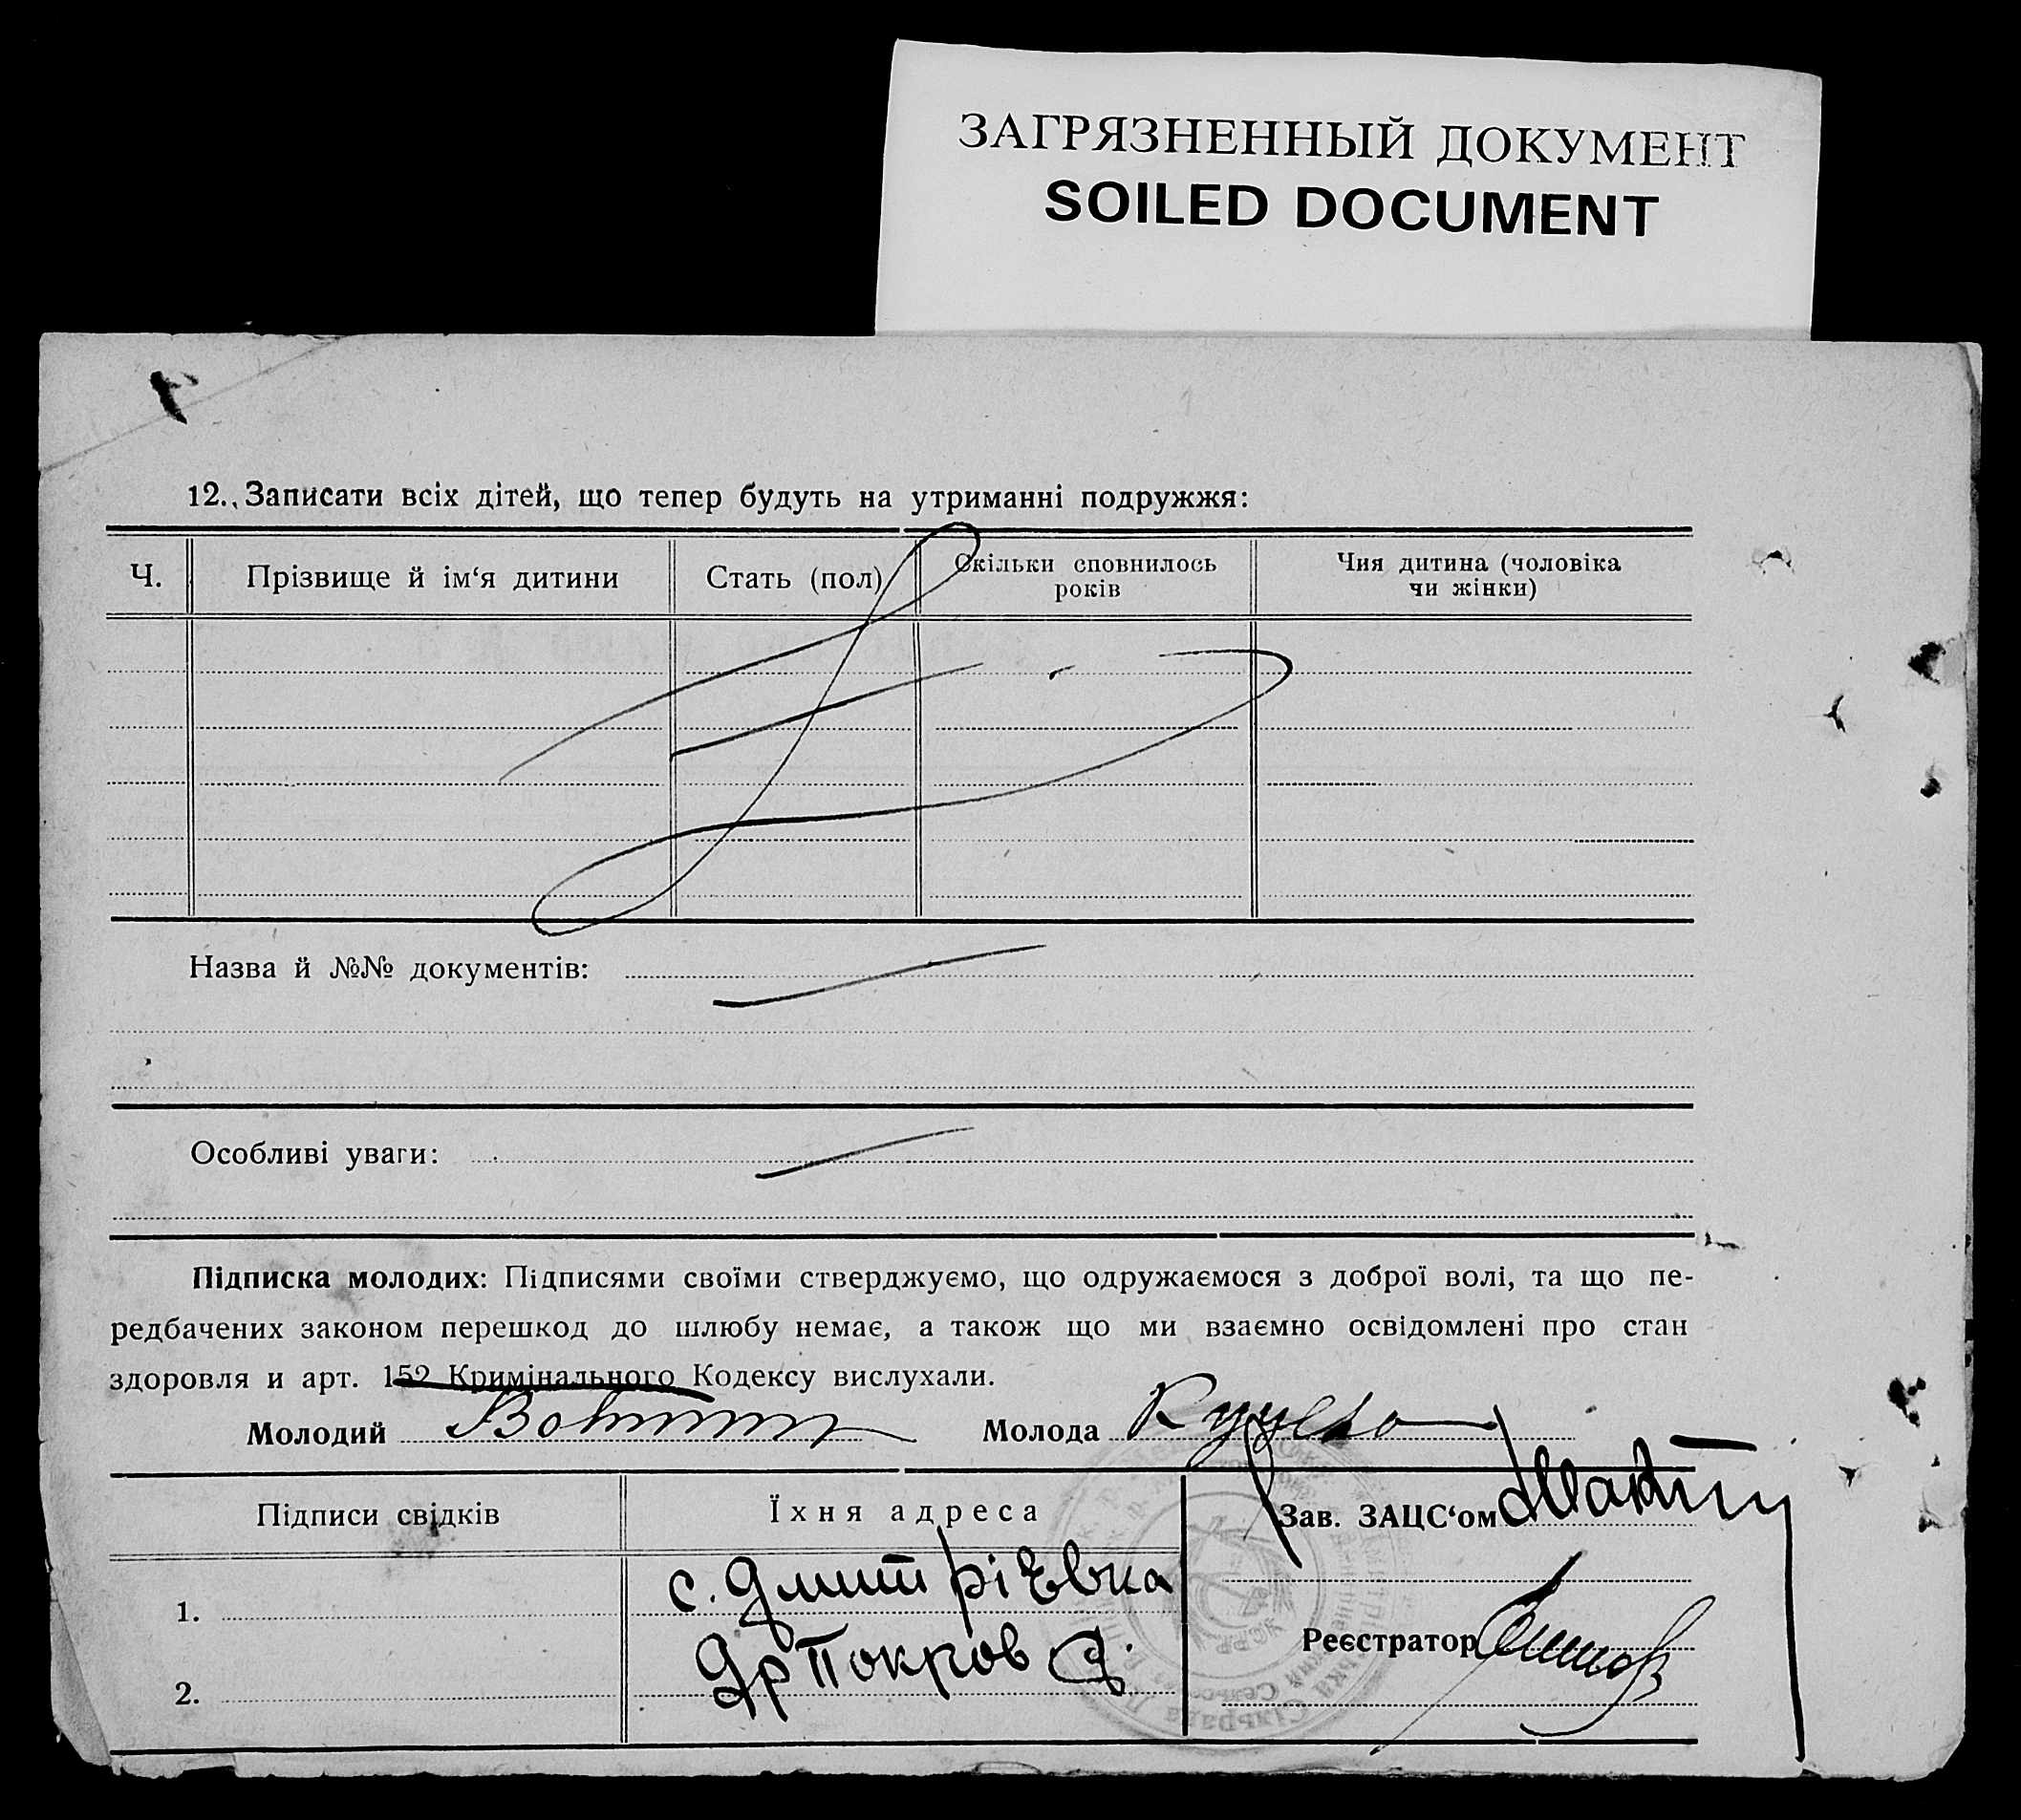 ЗАГРЯЗНЕННЫЙ ДОКУМЕНТ
SOILED DOCUMENT
12. Записати всіх дітей, що тепер будуть на утриманні подружжя:
Ч.
Прізвище й ім‘я дитини
Стать (пол)
Скільки сповнилось
років
Чия дитина (чоловіка
чи жінки)
Назва й №№ документів:
Особливі уваги:
Підписка молодих: Підписями своїми стверджуємо, що одружаємося з доброї волі, та що пе-
редбачених законом перешкод до шлюбу немає, а також що ми взаємно освідомлені про стан
здоровля и арт. 152 Кримінального Кодексу вислухали.
Молодий
Молода
Підписи свідків
Їхня адреса
Зав. ЗАЦС‘ом
с. Дмитрієвка
1.
Др Покров
Реєстратор
2.